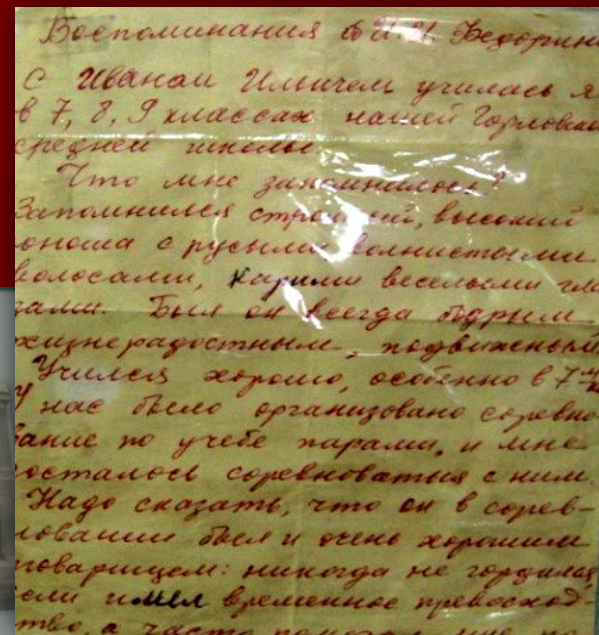 Воспоминания о И. И. Федорин
С Иваном Ильичем училась я
в 7, 8, 9 классах нашей Горловской
средней школы.
Что мне запомнилось?
Запомнился стройный, высокий
юноша с русыми волнистыми
волосами, карими веселыми гла
зами. Был он всегда бодрым,
жизнерадостным, подвижным.
Учился хорошо, особенно в 7
У нас было организовано соревно
вание по учебе парами, и мне
досталось соревноваться с ним.
Надо сказать, что он в сорев-
новании был и очень хорошим
товарищем: никогда не гордился
если имел временное превосход-
ство, а часто